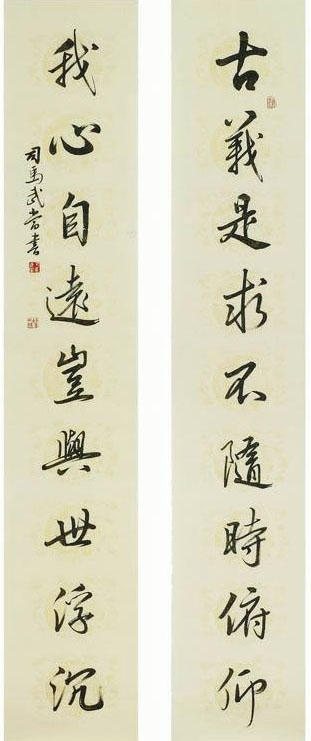 古義是求不隨時俯仰
我心自遠豈與世浮沉
司馬武當書